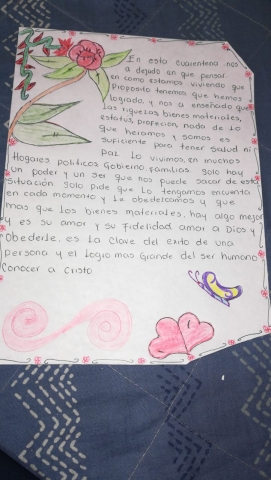 En esta cuarentena nos
a dejado en que pensar.
en como estamos viviendo que
Proposito tenemos que hemos
logrado, y nos a enseñado que
las riquezas, bienes materiales,
estatus, profecion, nada de lo
que heramos y somos es
suficiente para tener salud ni
Paz. Lo vivimos en muchos
Hogares politicos Gobierno familias. Solo hay
un poder y un ser que nos puede sacar de esta
situación solo pide que lo tengamos encuenta
en cada momento y le obedezcamos y que
mas que los bienes materiales, hay algo mejor
y es su amor y su fidelidad amor a Dios y
Obederle, es la clave del exito de una
persona y el logro mas Grande del ser humano
Conocer a cristo